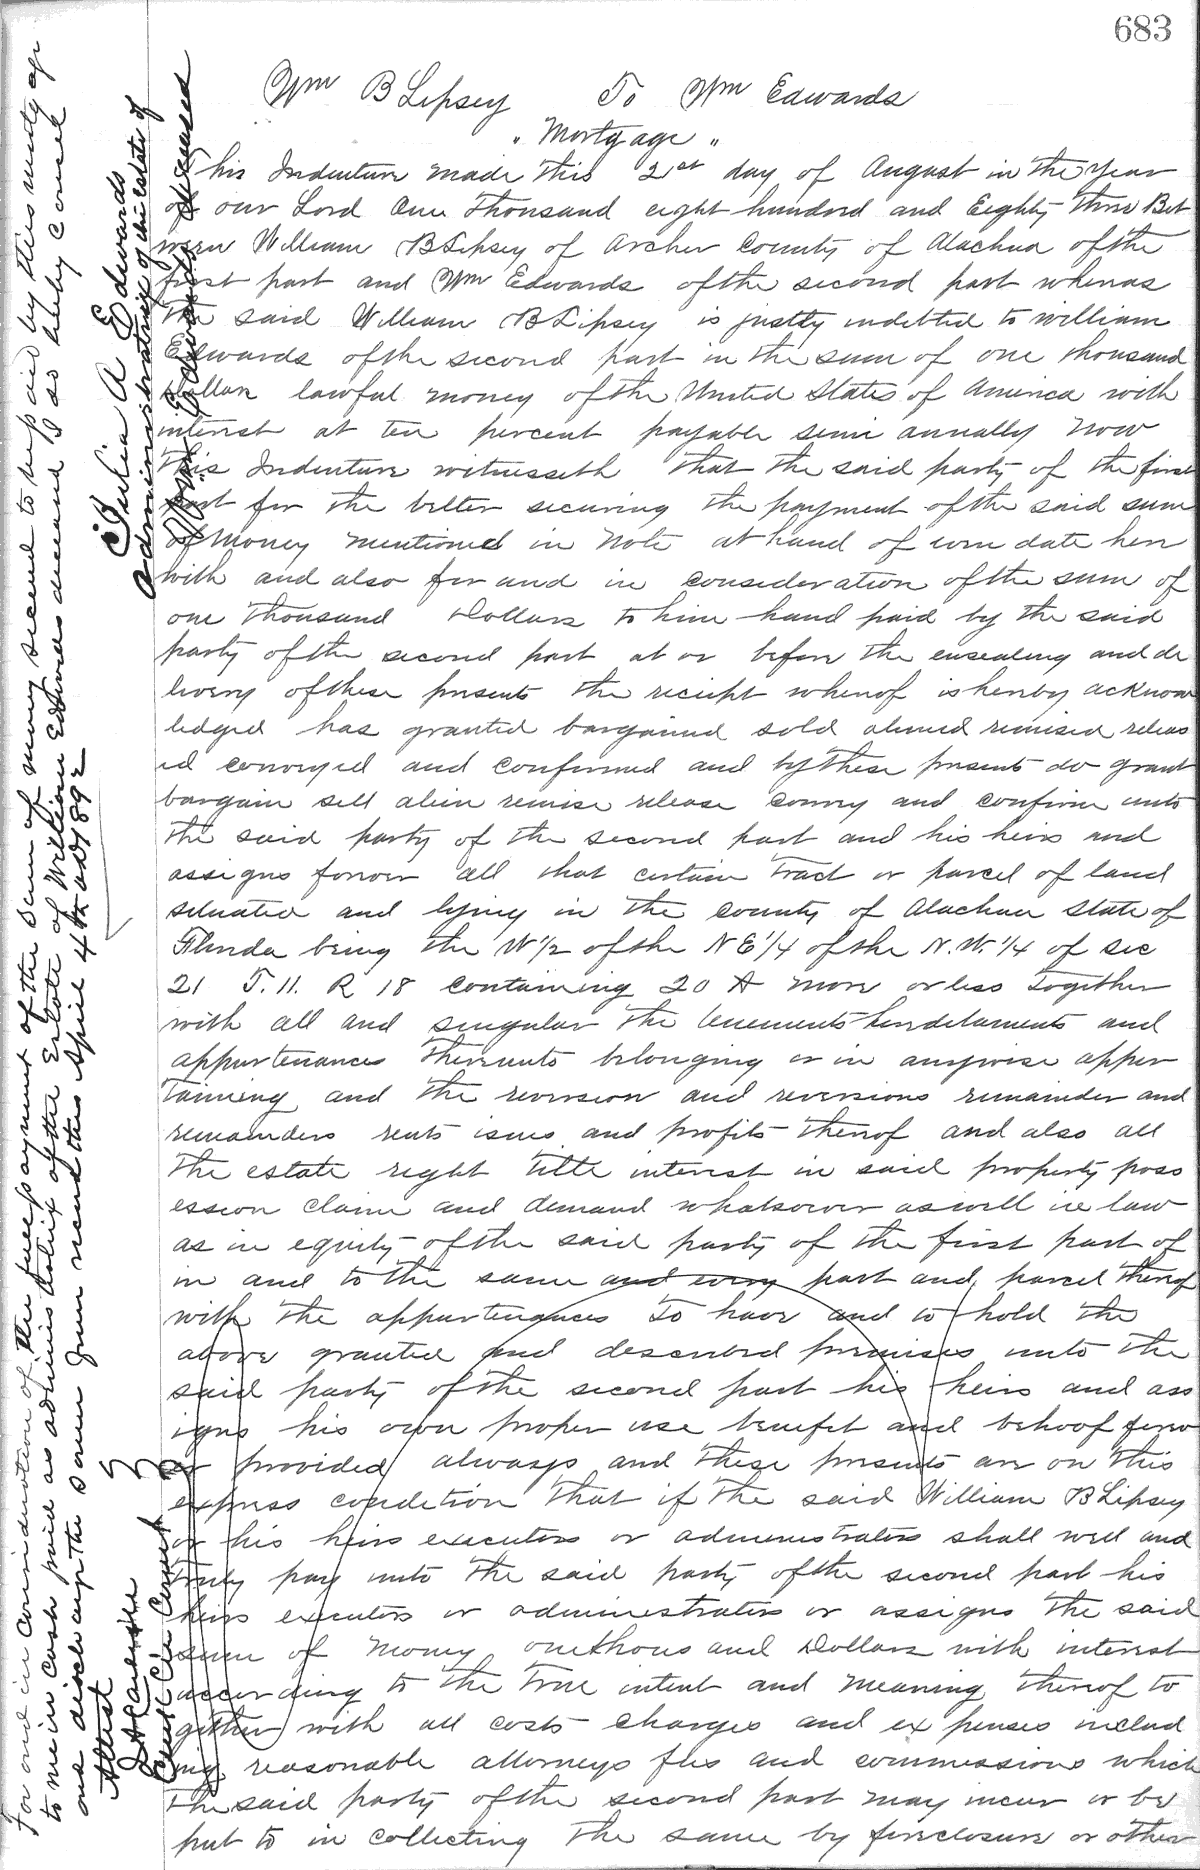 683
Wm B Lipsey To Wm Edwards
" Mortgage "
This Indenture made this 21st day of August in the Year
of our Lord One thousand eight hundred and Eighty three Bet
ween William B Lipsey of Archer County of Alachua of the
first part and Wm Edwards of the second part whereas
the said William B Lipsey is justly indebted to william
Edwards of the second part in the sum of one thousand
Dollars lawful money of the United States of America with
interest at ten percent payable semi anually Now
this Indenture witnesseth that the said party of the first
part for the better securing the payment of the said sum
of Money mentioned in Note at hand of even date here
with and also for and in consideration of the sum of
one thousand Dollars to him hand paid by the said
party of the second part at or before the ensealing and de
livery of these presents the reciept whereof is hereby acknow
ledged has granted bargained sold aliened remised releas
ed conveyed and confirmed and by these presents do grant
bargain sell alien remise release convey and confirm unto
the said party of the second part and his heirs and
assigns forever all that certain tract or parcel of land
situated and lying in the county of Alachua State of
Florida being the W 1/2 of the N E 1/4 of the N. W. 1/4 of sec
21 T. 11. R 18 containing 20 A more or less Together
with all and singular the tenements hereditaments and
appurtenances thereunto belonging or in anywise apper
taining and the reversion and reversions remainder and
remainders rents issues and profits thereof and also all
the estate right title interest in said property poss
ession claim and demand whatsoever as well in law
as in equity of the said party of the first part of
in and to the same and every part and parcel thereof
with the appurtenances To have and to hold the
above granted and described premises unto the
said party of the second part his heirs and ass
igns his own proper use benefit and behoof forev
er provided always and these presents are on this
express condition that if the said William B Lipsey
or his heirs executors or administrators shall well and
truly pay unto the said party of the second part his
heirs executors or administrators or assigns the said
sum of Money one thousand Dollars with interest
according to the true intent and meaning thereof to
gether with all costs charges and expenses includ
ing reasonable attorneys fees and commissions which
the said party of the second part may incur or be
put to in collecting the same by foreclosure or other
For and in consideration of the full payment of the sum of money secured to be paid by this mortgage
to me in cash paid as administratrix of the Estate of William Edwards deceased I do hereby cancel
and discharge the same from record this April 4th AD 1892
Julia A Edwards
administratrix of the estate of
Wm Edwards deceased
Attest
Clerk Cir Court